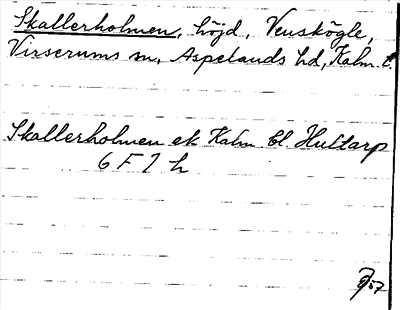 Skallerholmen, höjd, Venskögle,
Virserums sn, Aspelands hd, Kalm. l.
Skallerholmen ek Kalm bl. Hultarp
6 F 7 h
57